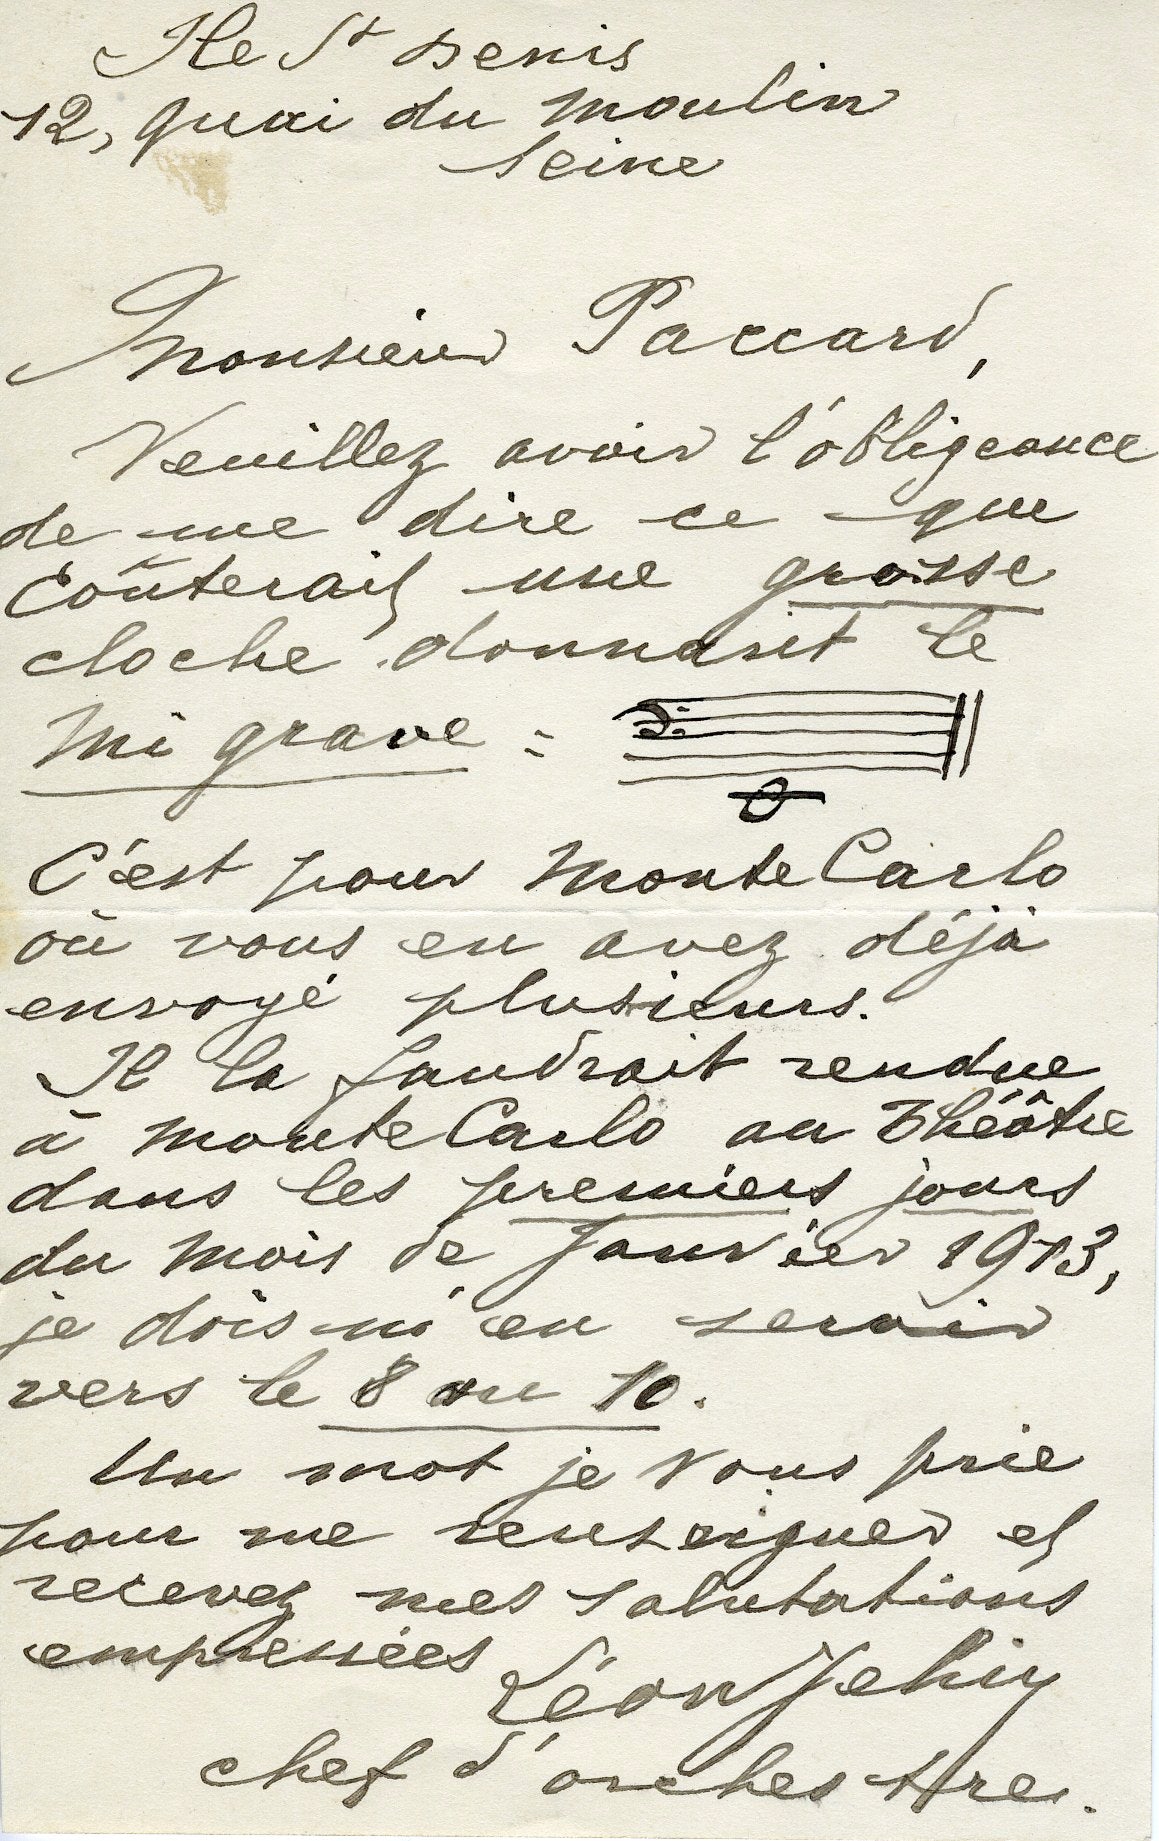 Ile St Denis
12, quai du Moulin
Seine
Monsieur Paccard,
Veuillez avoir l'obligeance
de me dire ce que
coûterait une grosse
cloche donnant le
mi grave :
C'est pour Monte Carlo
où vous en avez déjà
envoyé plusieurs.
Il la faudrait rendue
à Monte Carlo au Théâtre
dans les premiers jours
du mois de Janvier 1913,
je dois m'en servir
vers le 8 ou 10.
Un mot je vous prie
pour me renseigner et
recevez mes salutations
empressées Léon Jehin
chef d'orchestre.